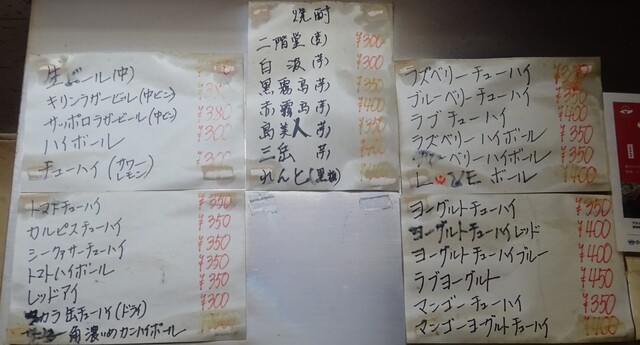 生ビール(中)
キリンラガービール(中ビン)
サッポロラガービール(中ビン) ¥380
ハイボール ¥300
チューハイ(サワー レモン) ¥300
トマトチューハイ ¥350
カルピスチューハイ ¥350
シークァサーチューハイ ¥350
トマトハイボール ¥350
レッドアイ ¥300
缶チューハイ(ドライ)
角濃いめカンハイボール
焼酎
二階堂(麦) ¥300
白波(芋) ¥300
黒霧島(芋) ¥350
赤霧島(芋) ¥400
島美人(芋) ¥350
三岳(芋) ¥400
れんと(黒糖)
ラズベリーチューハイ
ブルーベリーチューハイ ¥350
ラブチューハイ ¥400
ラズベリーハイボール ¥350
ベリーハイボール ¥350
LOVEボール
ヨーグルトチューハイ ¥350
ヨーグルトチューハイレッド ¥400
ヨーグルトチューハイブルー ¥400
ラブヨーグルト ¥450
マンゴーチューハイ ¥350
マンゴーヨーグルトチューハイ ¥400